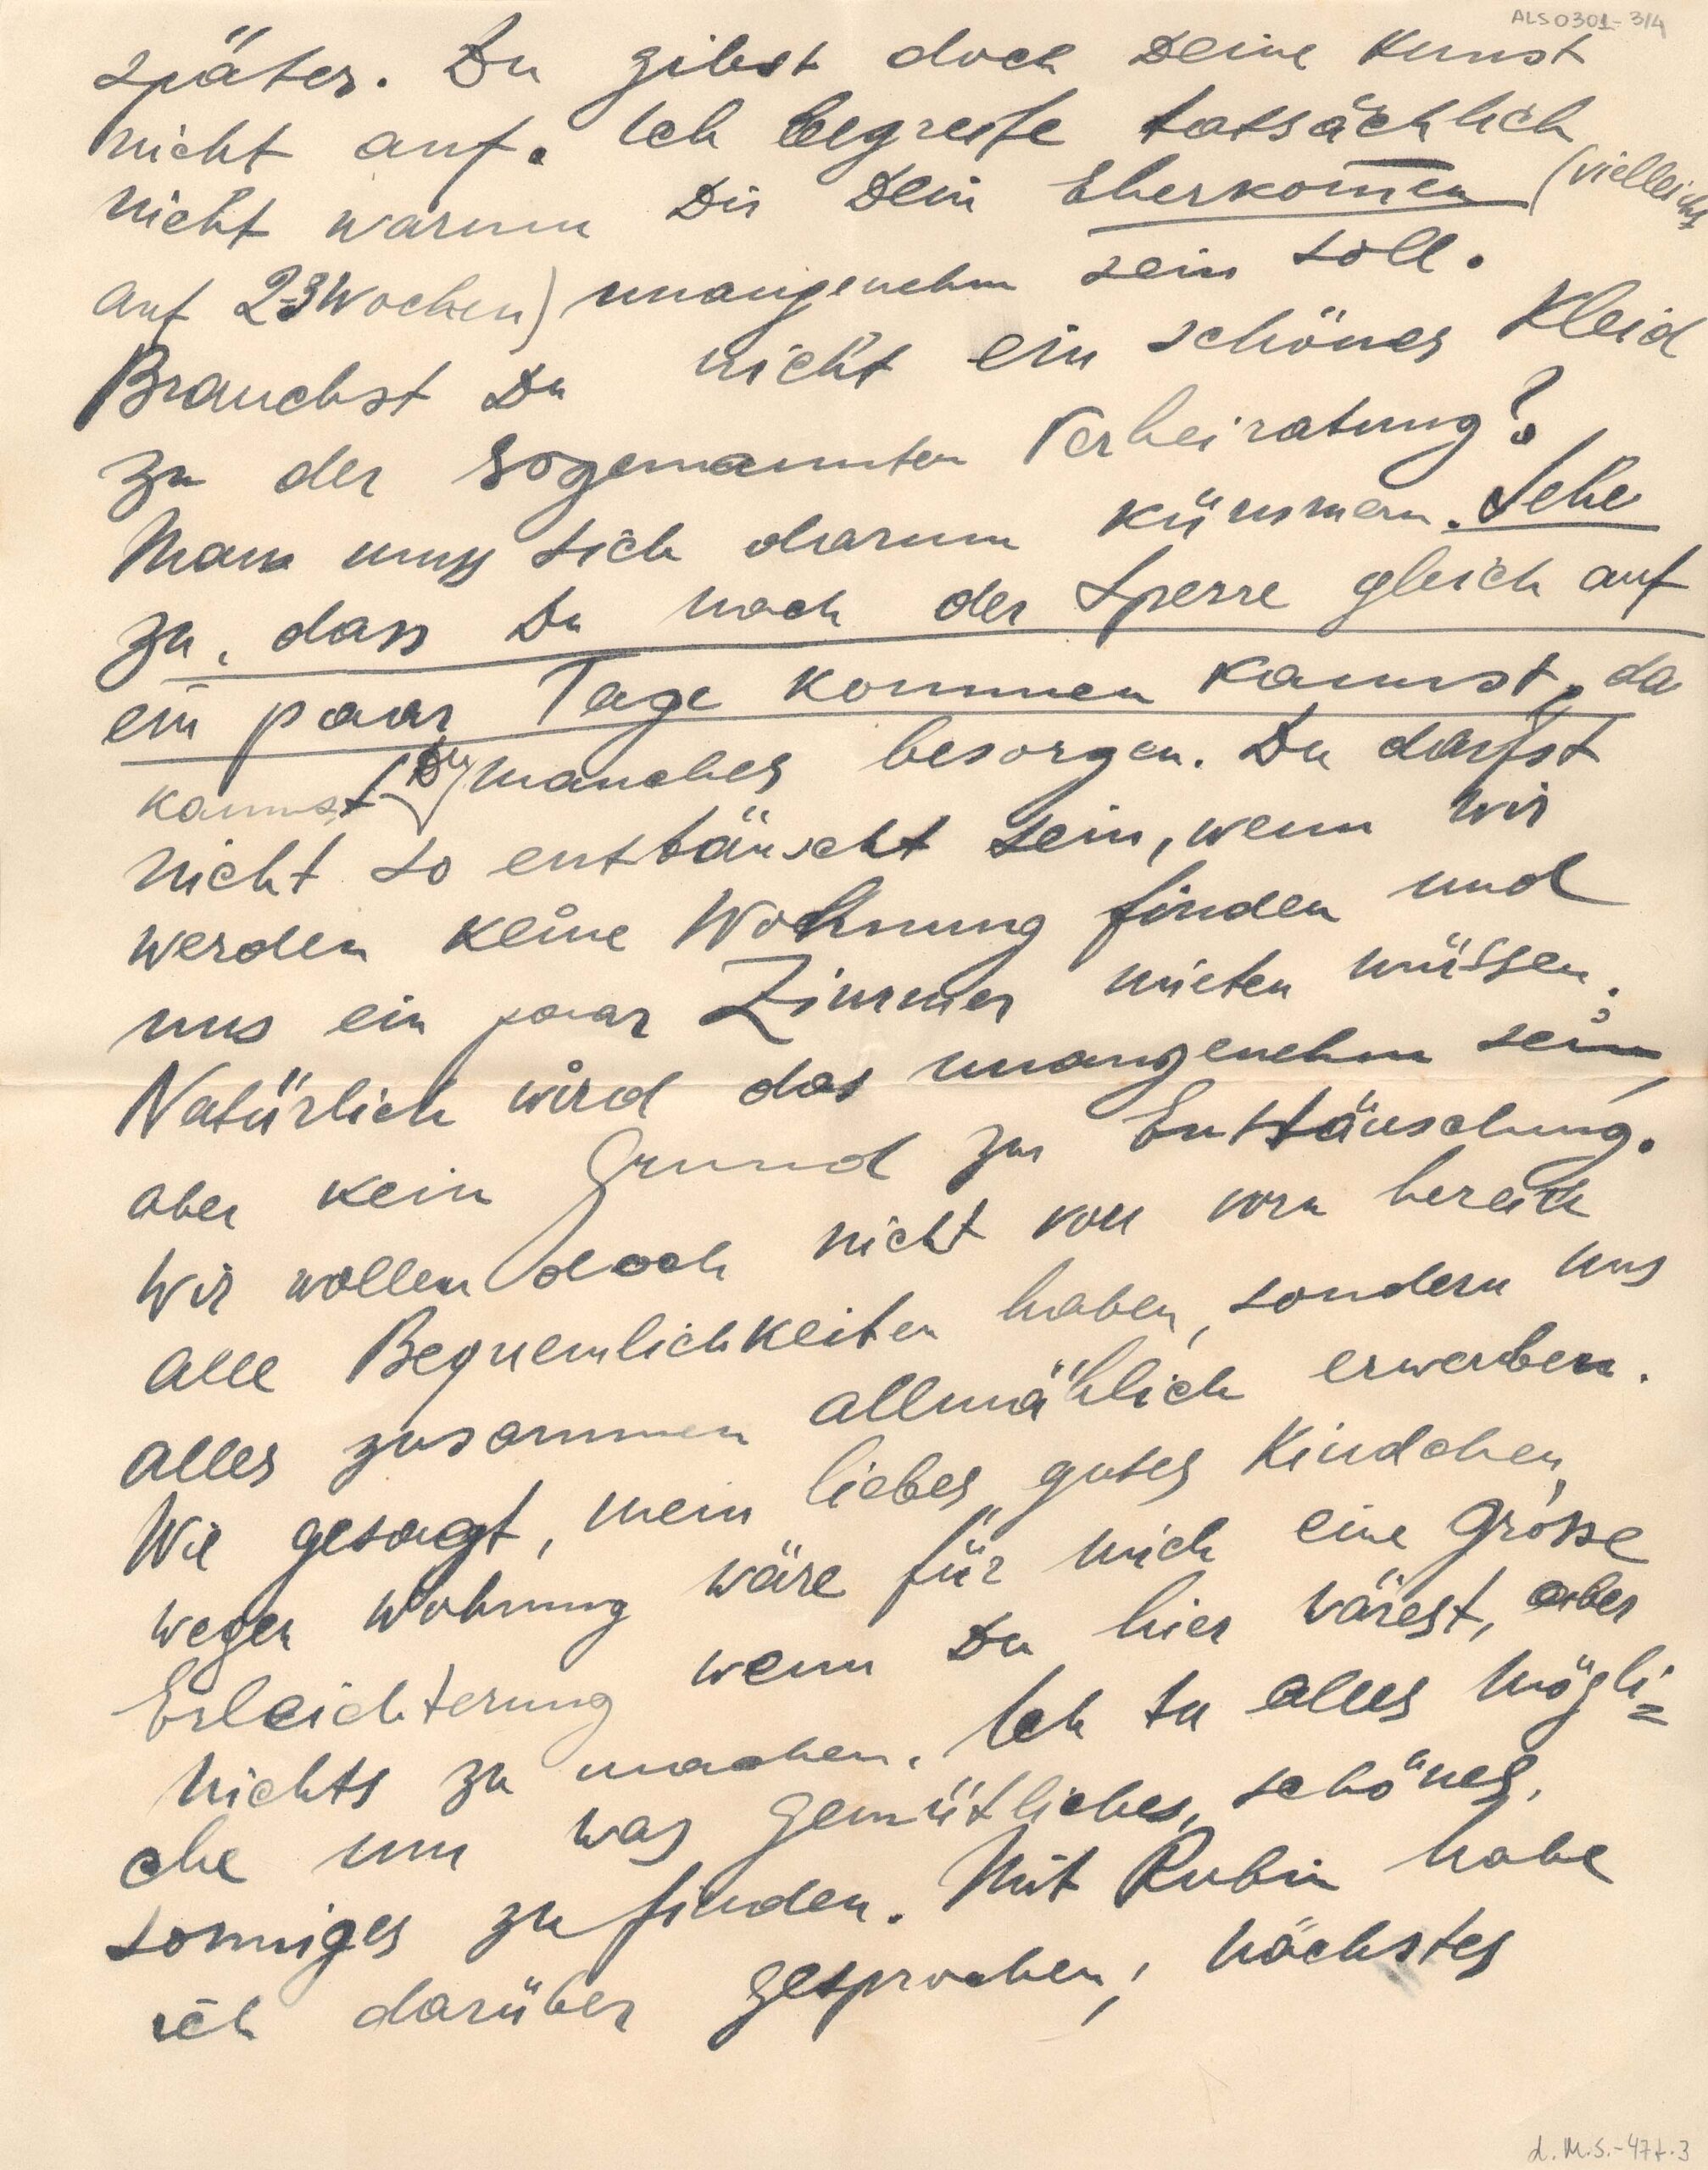 ALS0301-3/4
später. Du gibst doch Deine Kunst
nicht auf. Ich begreife tatsächlich
nicht warum Dir Dein Eherkom̅en (vielleicht
auf 2-3 Wochen) unangenehm sein soll.
Brauchst Du nicht ein schönes Kleid
zu der sogenannten Verheiratung?
Man muss sich darum kümmern. Sehe
zu, dass Du nach der Sperre gleich auf
ein paar Tage kommen kannst, da
kannst (Du) manches besorgen. Du darfst
nicht so enttäuscht sein, wenn wir
werden keine Wohnung finden und
uns ein paar Zimmer mieten müssen.
Natürlich wird das unangenehm sein,
aber kein Grund zur Enttäuschung.
Wir wollen doch nicht von vorn herein
alle Bequemlichkeiten haben, sondern uns
alles zusammen allmählich erwerben.
Wie gesagt, mein liebes, gutes Kindchen,
wegen Wohnung wäre für mich eine grosse
Erleichterung wenn Du hier wärest, aber
nichts zu machen. Ich tu alles mögli=
che um was gemütliches, schönes,
sonniges zu finden. Mit Rubin habe
ich darüber gesprochen; nächstes
L.M.S.-47+.3